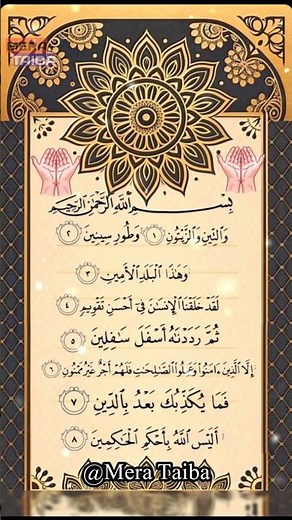 MERA
TAIBA
بِسْمِ اللَّهِ الرَّحْمَٰنِ الرَّحِيمِ
وَالتِّينِ وَالزَّيْتُونِ ١ وَطُورِ سِينِينَ ٢
وَهَٰذَا الْبَلَدِ الْأَمِينِ ٣
لَقَدْ خَلَقْنَا الْإِنسَانَ فِي أَحْسَنِ تَقْوِيمٍ ٤
ثُمَّ رَدَدْنَٰهُ أَسْفَلَ سَٰفِلِينَ ٥
إِلَّا الَّذِينَ ءَامَنُوا وَعَمِلُوا الصَّٰلِحَٰتِ فَلَهُمْ أَجْرٌ غَيْرُ مَمْنُونٍ ٦
فَمَا يُكَذِّبُكَ بَعْدُ بِالدِّينِ ٧
أَلَيْسَ اللَّهُ بِأَحْكَمِ الْحَٰكِمِينَ ٨
@Mera Taiba